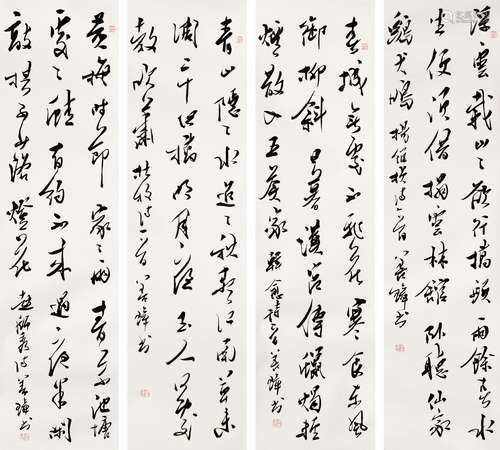 浮雲載山〻欲行橋頭雨餘春水
生便須借榻雲林館卧聽仙家
鷄犬鳴 楊維楨詩一首 書
春城無處不飛花寒食東風
御柳斜日暮漢宮傳蠟燭輕
煙散入五侯家 愈詩一首 書
青山隱〻水迢〻秋盡江南草未
凋二十四橋明月夜玉人何處
教吹簫 杜牧詩一首 書
黃梅時節家〻雨青草池塘
處〻蛙有約不來過夜半閑
敲棋子落燈花 趙師秀詩 書